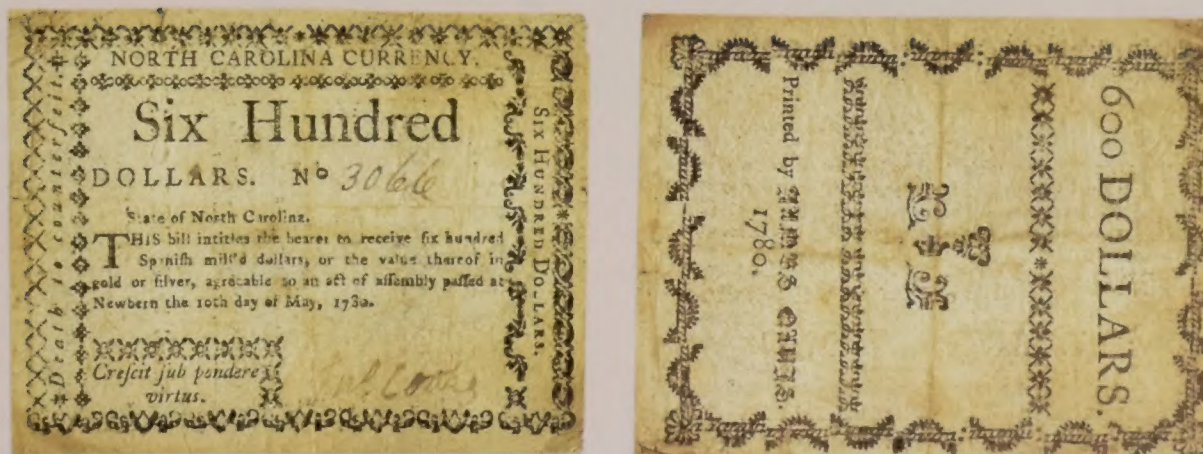 NORTH CAROLINA CURRENCY.
Six Hundred
DOLLARS. No 3066
State of North Carolina.
THIS bill intitles the bearer to receive ſix hundred
Spaniſh mill'd dollars, or the value thereof in
gold or ſilver, agreeable to an act of aſſembly paſſed at
Newbern the 10th day of May, 1780.
Creſcit ſub pondere
virtus.
Death to counterfeit.
SIX HUNDRED DOLLARS.
600 DOLLARS.
Printed by
1780.